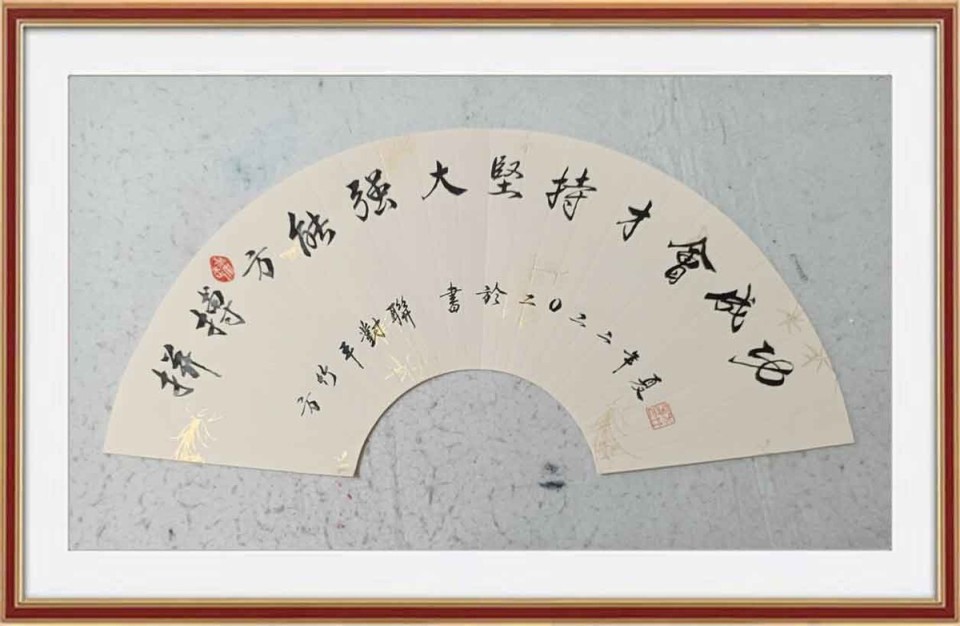 拼搏方能强大堅持才會成功
方竹平對聯 書於二〇二二年夏